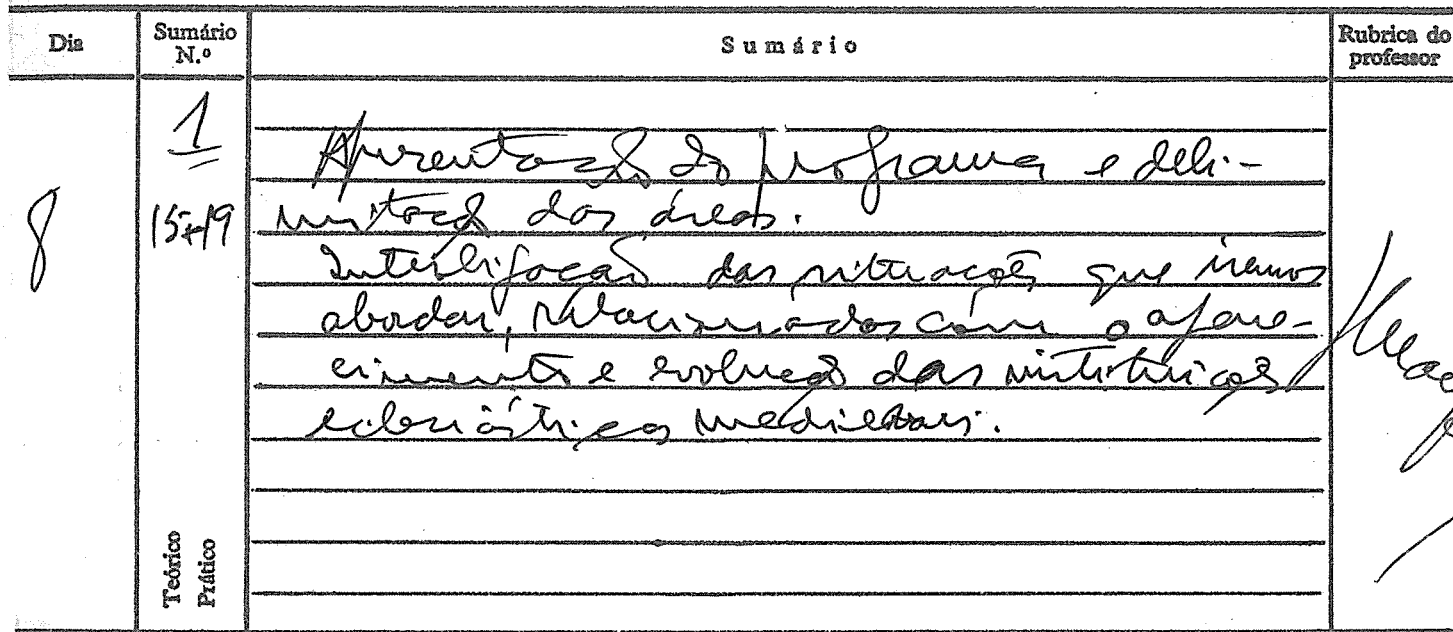 Dia
Sumário N.º
Sumário
Rubrica do professor
8
1
15-19
Apresentação do programa e deli-
mitação das áreas.
Interligação das situações que iremos
abordar, relacionadas com o apare-
cimento e evolução das instituições
eclesiásticas medievais.
Teórico
Prático